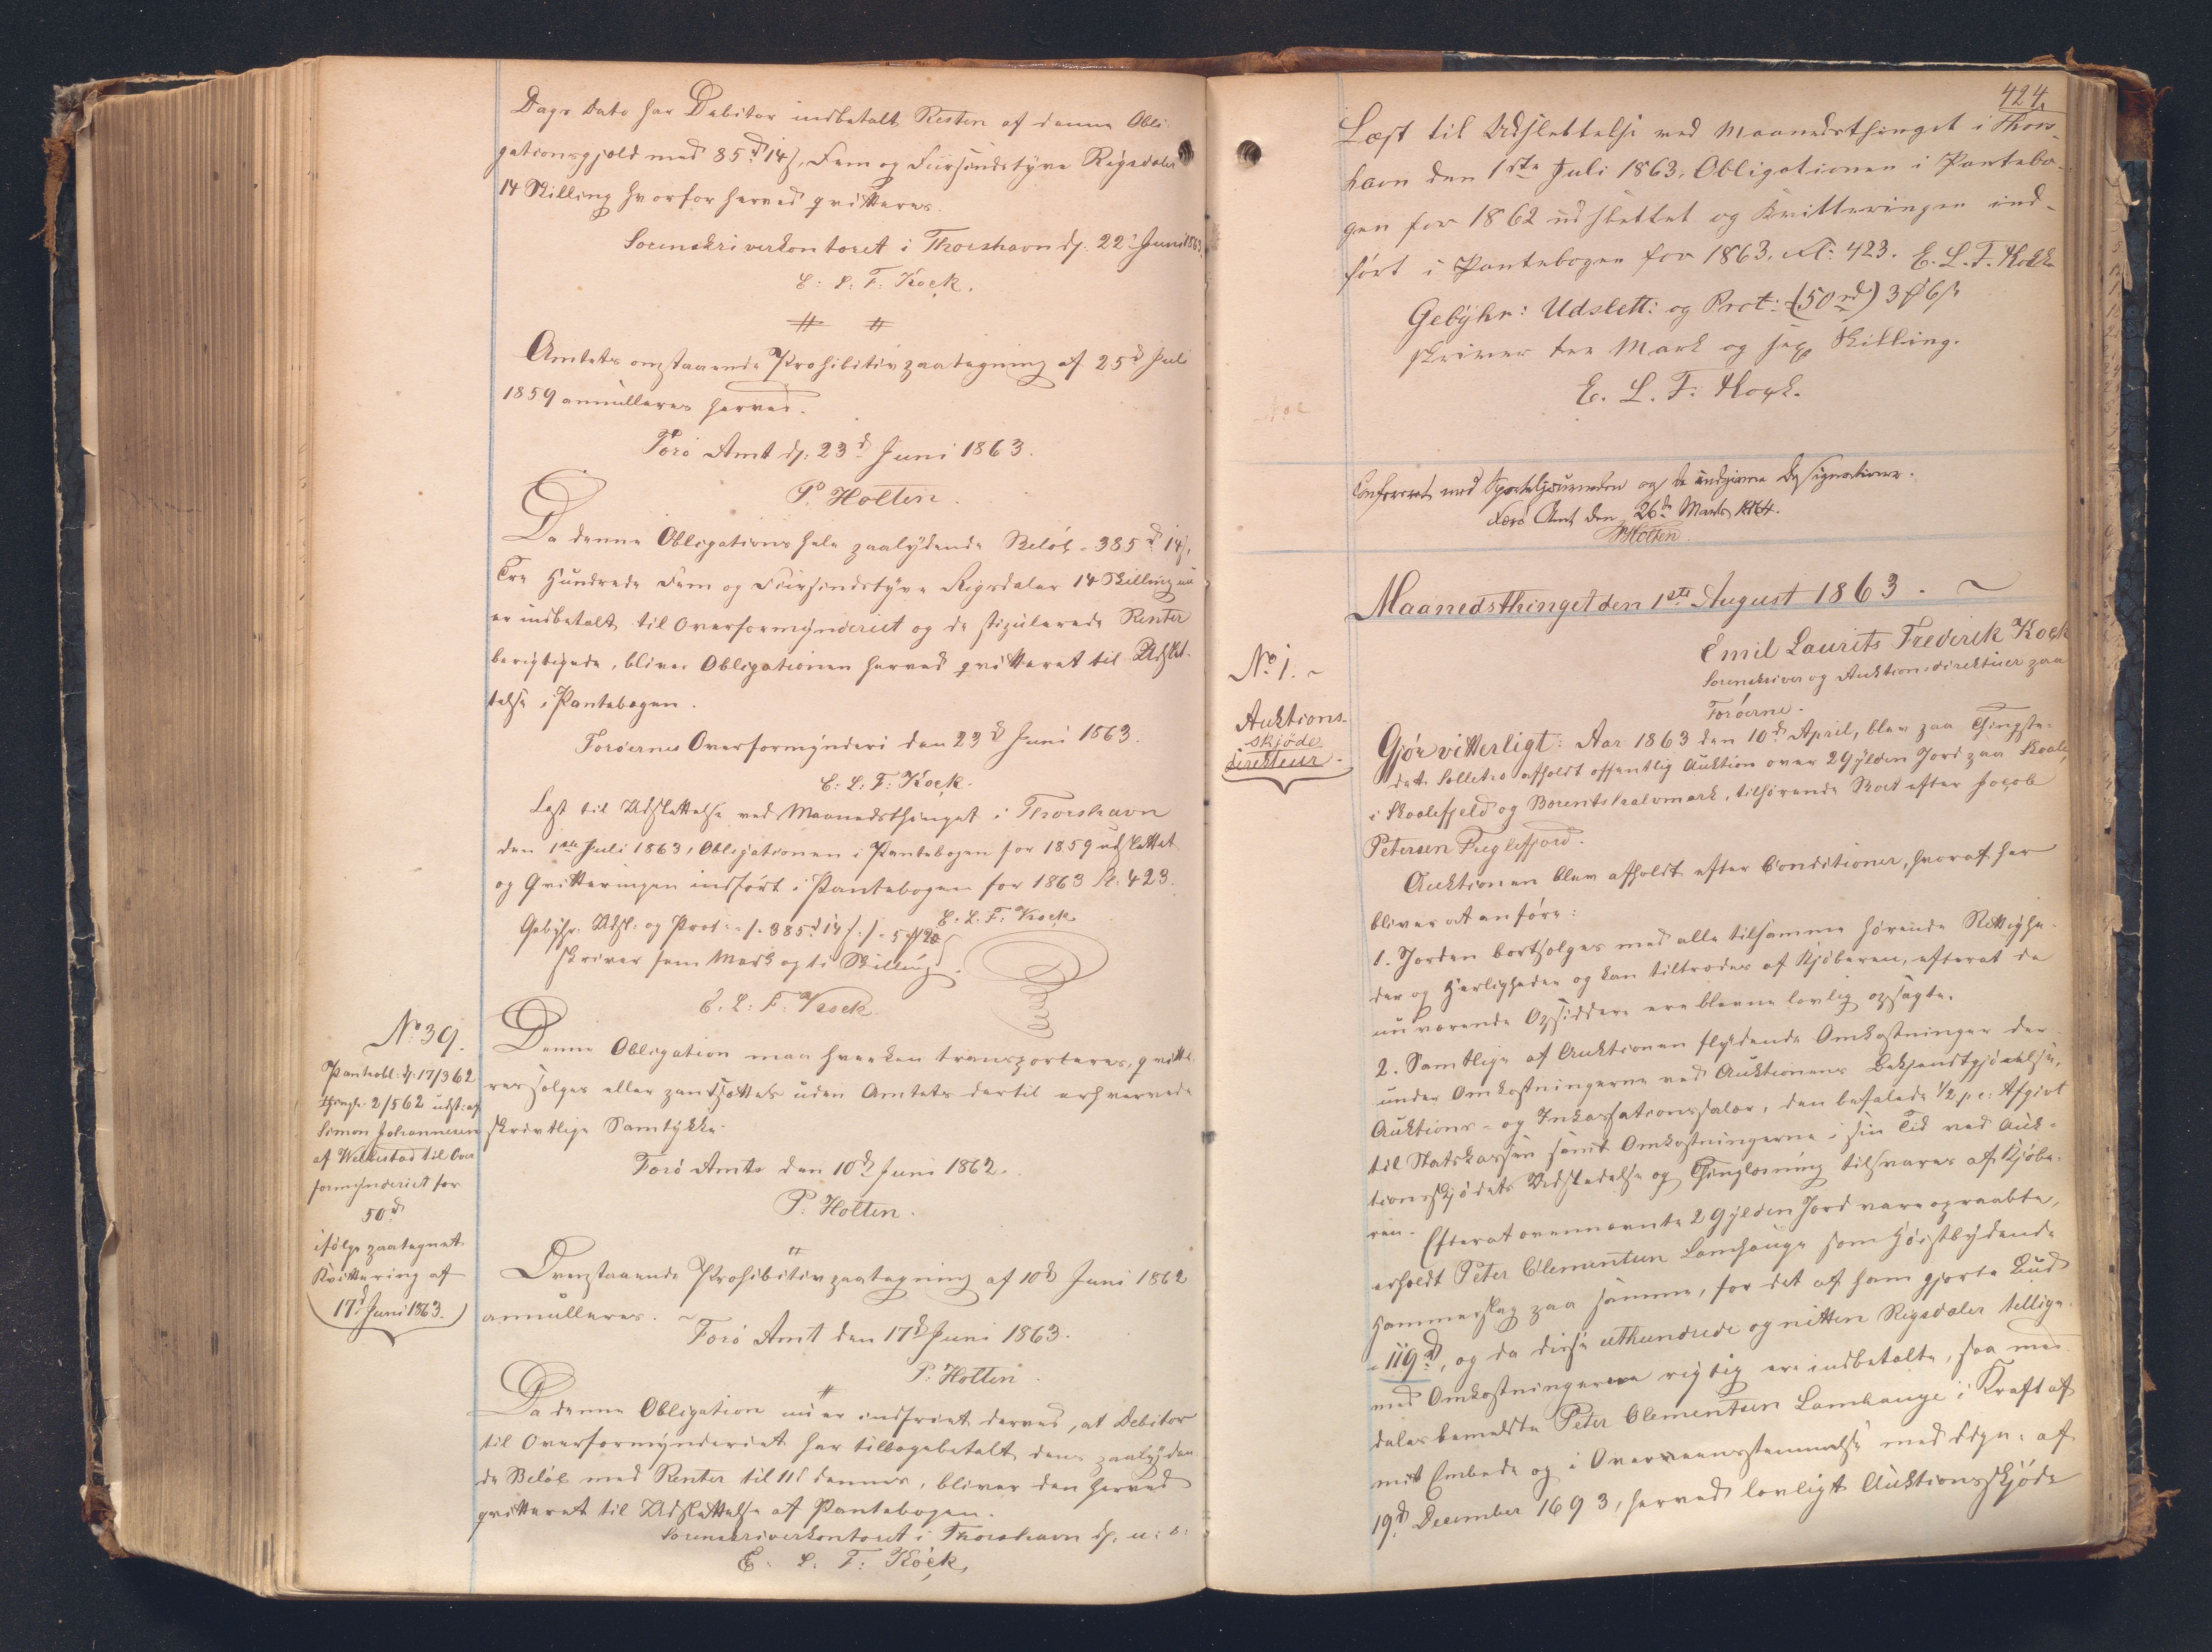 Dags Dato har Debitor indbetalt Resten af denne Obli-
gationsgjæld med 85 rd 14 s, Fem og Fiirsindstyve Rigsdaler
14 Skilling hvorfor herved qvitteres.
Sorenskriverkontoret i Thorshavn d. 22d Juni 1863.
E: L: F: Kock.
Amtets omstaaende Prohibitivpaategning af 25d Juli
1859 annulleres herved.
Færø Amt d: 23d Juni 1863.
P. Holten.
Da denne Obligations hele paalydende Beløb - 385 rd 14 s,
Tre Hundrede Fem og Fiirsindstyve Rigsdaler 14 Skilling nu
er indbetalt til Overformynderiet og de stipulerede Renter
berigtigede, bliver Obligationen herved qvitteret til Udslet-
telse i Pantebogen.
Færøernes Overformynderi den 23d Juni 1863.
E: L: F: Kock.
Læst til Udslettelse ved Maanedsthinget i Thorshavn
den 1ste Juli 1863, Obligationen i Pantebogen for 1859 udslettet
og Qvitteringen indført i Pantebogen for 1863 Fol: 423.
E: L: F: Kock
Gebyhr: Udsl: og Prot: -/- 385 rd 14 s -/- 5 # 10 s
skriver fem Mark og ti Skilling.
E. L: F. Kock
No 39.
Pantobl: d. 17/3 62
thingl: 2/5 62 udst: af
Simon Johannesen
af Welbestad til Over
formynderiet for
50 rd
ifølge paategnet
Kvittering af
17d Juni 1863.
Denne Obligation maa hverken transporteres, qvitte-
res sælges eller pantsættes uden Amtets dertil erhvervede
skrivtlige Samtykke.
Færø Amt den 10d Juni 1862.
P. Holten.
Ovenstaaende Prohibitivpaategning af 10d Juni 1862
annulleres.
Færø Amt den 17d Juni 1863.
P. Holten.
Da denne Obligation nu er indfriet derved, at Debitor
til Overformynderiet har tilbagebetalt dens paalyden
de Beløb med Renter til 11d dennes, bliver den herved
qvitteret til Udslettelse af Pantebogen.
Sorenskriverkontoret i Thorshavn d. u: s:
E. L: F: Kock,
424.
Læst til Udslettelse ved Maanedsthinget i Thors-
havn den 1ste Juli 1863, Obligationen i Pantebo-
gen for 1862 udslettet og Kvitteringen ind-
ført i Pantebogen for 1863, Fol: 423. E. L. F. Kock
Gebyhr: Udslett: og Prot: (50 rd) 3 # 6 s
skriver tre Mark og sex Skilling.
E. L. F. Kock.
Confereret med Sporteljournalen og de indgivne Designationer.
Færø Amt den 26d Marts 1864.
PHolten
Maanedsthinget den 1ste August 1863.
No 1.
Auktions-
skjøde
direkteur.
Emil Laurits Frederik Kock
Sorenskriver og Auktionsdirekteur paa
Færøerne.
Gjør vitterligt: Aar 1863 den 10d April, blev paa Thingste-
det Selletræ afholdt offentlig Auktion over 2 Gylden Jord paa Skaale
i Skaalefjeld og Borentskalvmark, tilhørende Boet efter Jacob
Petersen Fuglefjord.
Auktionen blev afholdt efter Conditioner, hvoraf her
bliver at anføre:
1. Jorden bortsælges med alle tilsamme hørende Rettighe-
der og Herligheder og kan tiltrædes af Kjøberen, efterat de
nu værende Opsiddere ere blevne lovlig opsagte.
2. Samtlige af Auktionen flydende Omkostninger der-
under Omkostningerne ved Auktionens Bekjendtgjørelse,
Auktions- og Inkassationssalær, den befalede 1/2 pc: Afgivt
til Statskassen samt Omkostningerne i sin Tid ved Auk-
tionsskjødets Udstedelse og Thinglæsning tilsvares af Kjøbe-
ren. Efterat ovennævnte 2 Gylden Jord vare opraabte,
erholdt Peter Clementsen Lamhauge som Høistbydende
Hammerslag paa samme, for det af ham gjorte Bud
- 119 rd, og da disse ethundrede og nitten Rigsdaler tillige
med Omkostningerne rigtig ere indbetalte, saa med-
deles bemeldte Peter Clementsen Lamhauge i Kraft af
mit Embede og i Overeensstemmelse med Fdgn: af
19d December 1693, herved lovligt Auktionsskjøde